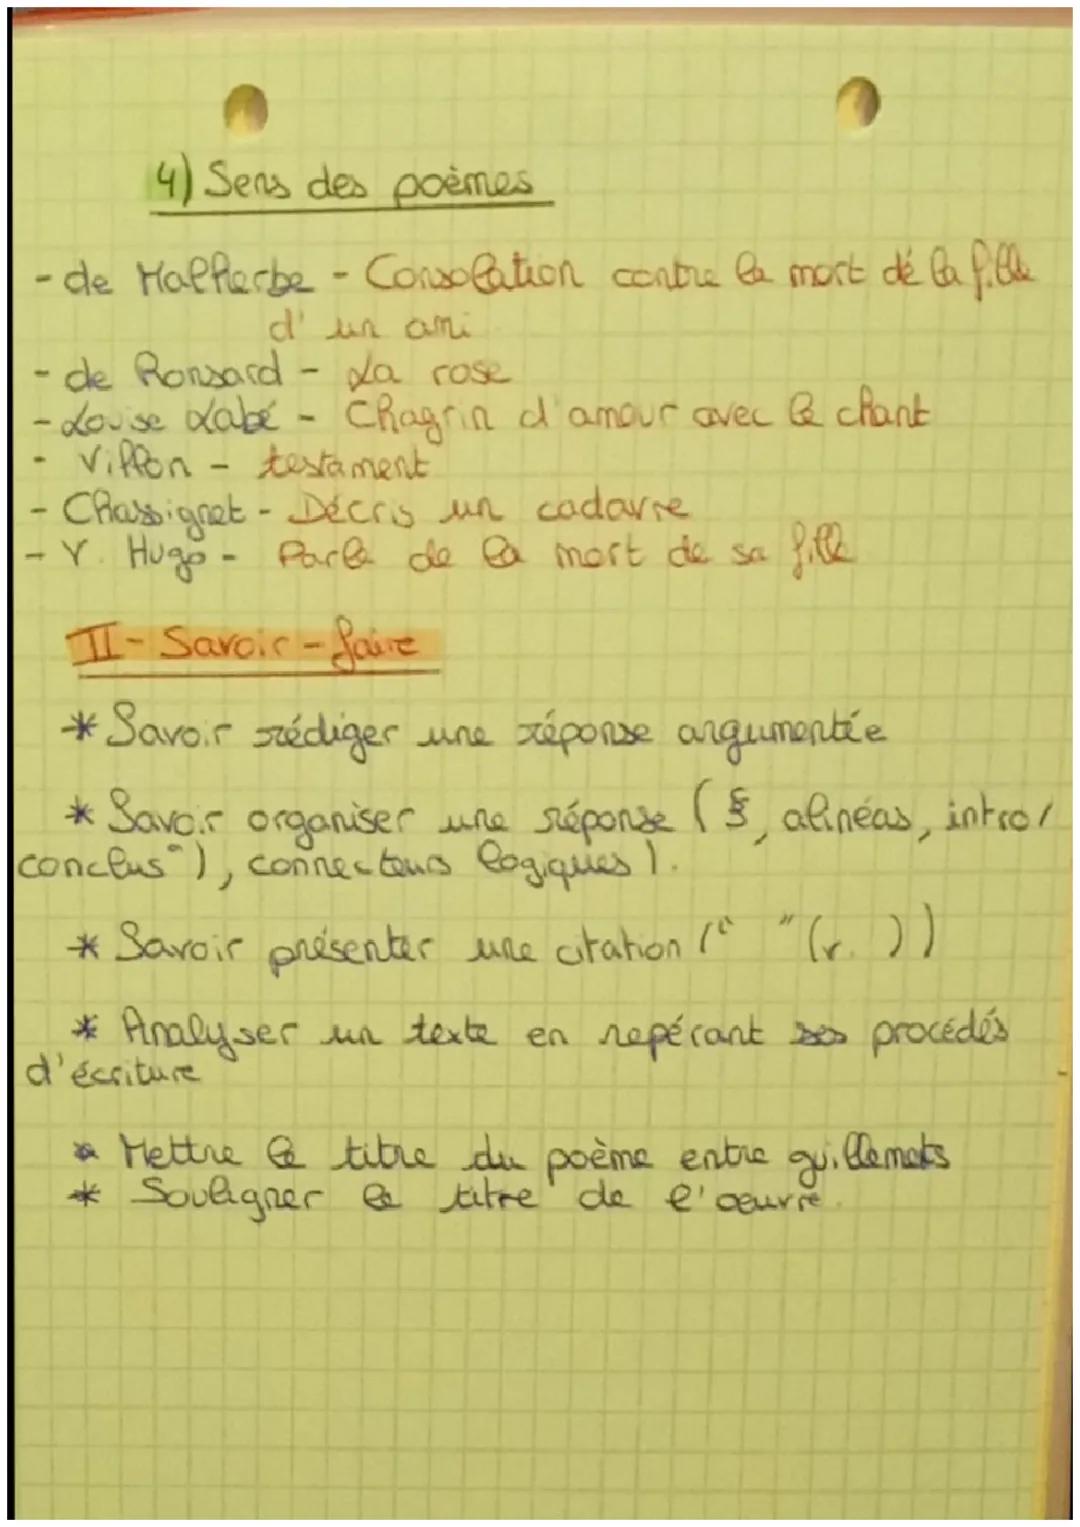 4) Sens des poèmes
- de Malherbe - Consolation contre la mort dé la fille
d'un ami
- de Ronsard - La rose
- Louise Labé - Chagrin d'amour avec le chant
- Villon - testament
- Chassignet - Décris un cadavre
- V. Hugo - Parle de la mort de sa fille
II - Savoir-faire
* Savoir rédiger une réponse argumentée
* Savoir organiser une réponse ( §, alinéas, intro/
conclus°), connecteurs logiques ).
* Savoir présenter une citation (" " (v. ))
* Analyser un texte en repérant ses procédés
d'écriture
* Mettre le titre du poème entre guillemets
* Souligner le titre de l'œuvre.